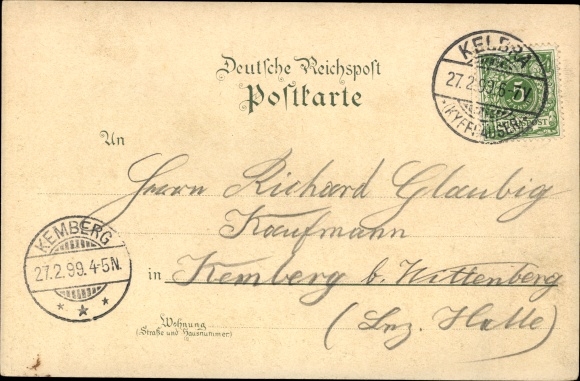 KELBRA
27.2.99.6-7V
(KYFFHÄUSER)
Deutsche Reichspost
Postkarte
An
Herrn Richard Glaubig
Kaufmann
in Kemberg b. Wittenberg
(Bez. Halle)
KEMBERG
27.2.99.4-5N.
* * *
Wohnung
(Straße und Hausnummer)